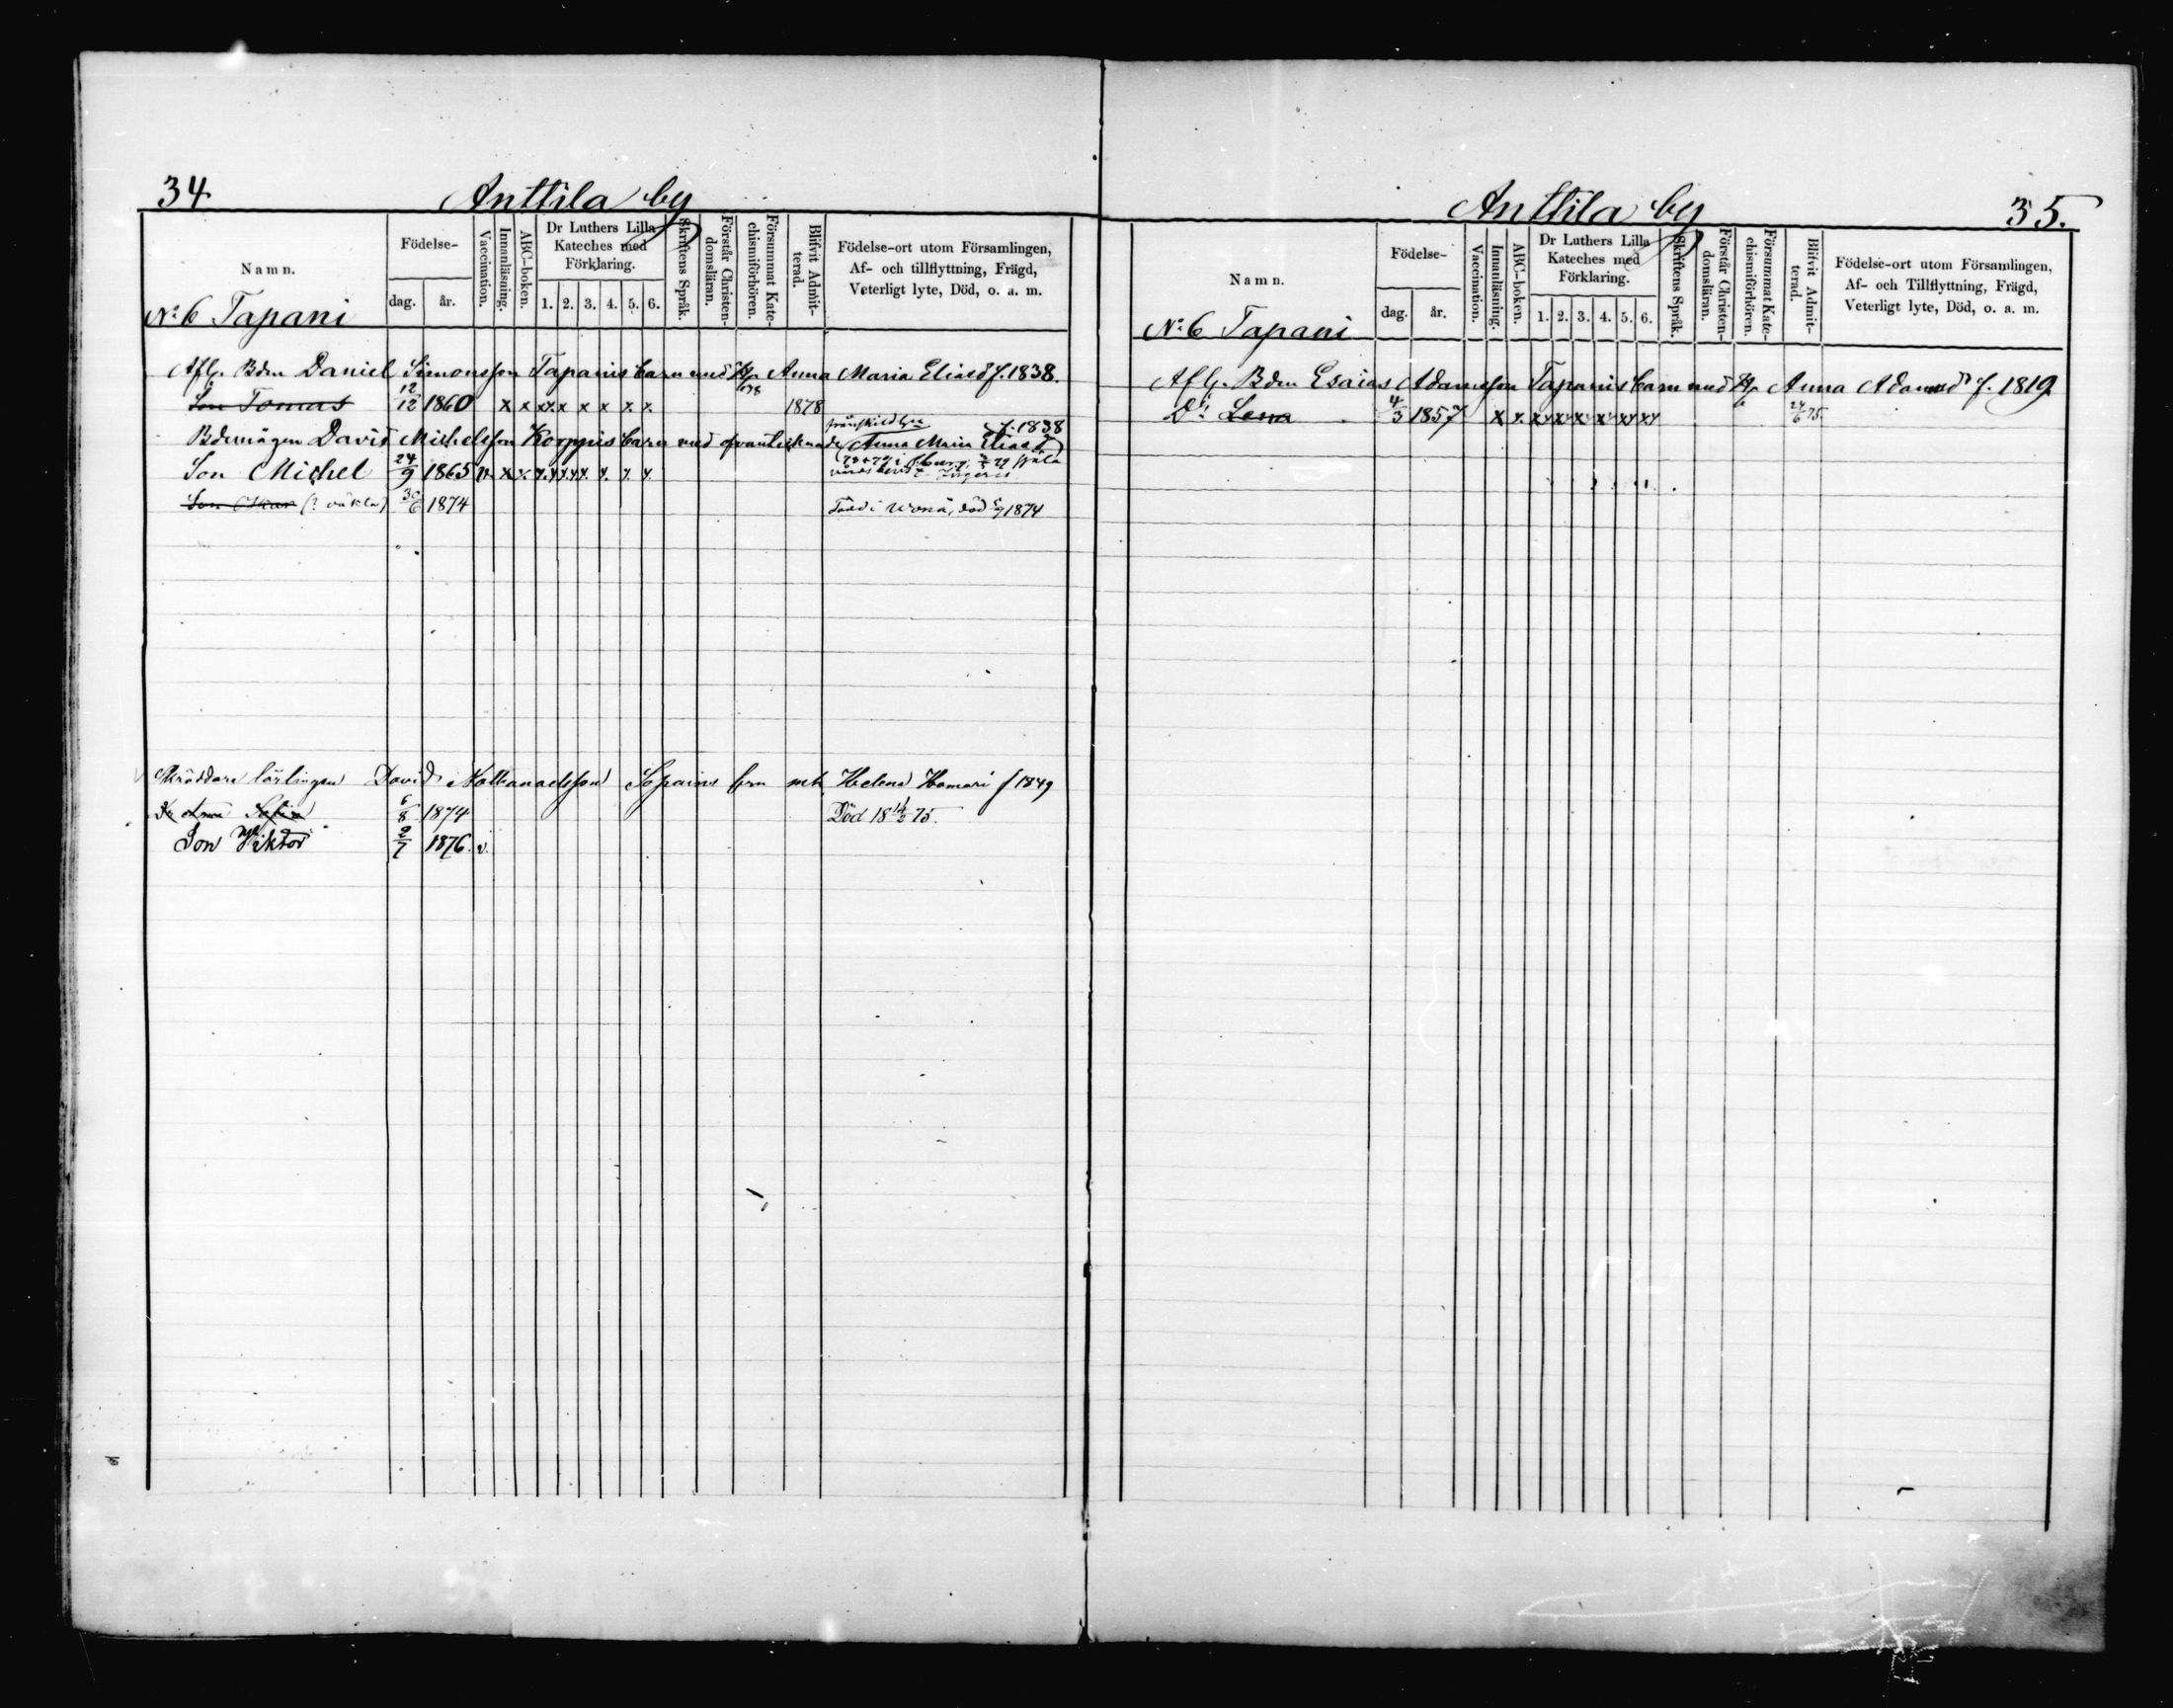 34
Anttila by
Namn.
Födelse-
dag.
år.
Vaccination.
Innanläsning.
ABC-boken.
Dr Luthers Lilla
Kateches med
Förklaring.
1. 2. 3. 4. 5. 6.
Skriftens Språk.
Förstår Christen-
domsläran.
Försummat Kate-
chismiförhören.
Blifvit Admit-
terad.
Födelse-ort utom Församlingen,
Af- och tillflyttning, Frägd,
Veterligt lyte, Död, o. a. m.
No 6 Tapani
Afl. Bdn Daniel Simonsson Tapanis barn med Anna Maria Eliasd f. 1838.
Son Tomas 12/12 1860 x x xx x x x x x 1878
frånskild f. 1838
Bdemågen David Michelsson Korppis barn med Anna Maria Eliasd
Son Michel 24/9 1865 v. x x
Son Oskar 30/6 1874 Född i död 1874
Skräddare lärlingen David Nathanaelsson Sopains brn mh Helena Hamari f 1849
Sofia 6/8 1874 Död 18 75.
Son Viktor 2/7 1876. v.
Anttila by
35.
Namn.
Födelse-
dag.
år.
Vaccination.
Innanläsning.
ABC-boken.
Dr Luthers Lilla
Kateches med
Förklaring.
1. 2. 3. 4. 5. 6.
Skriftens Språk.
Förstår Christen-
domsläran.
Försummat Kate-
chismiförhören.
Blifvit Admit-
terad.
Födelse-ort utom Församlingen,
Af- och Tillflyttning, Frägd,
Veterligt lyte, Död, o. a. m.
No 6 Tapani
Afl. Bdn Esaias Adamsson Tapanis barn med Anna Adamsd f. 1819.
Dr Lena 4/3 1857 x x. xx xx xx xx xx 24/6 75.